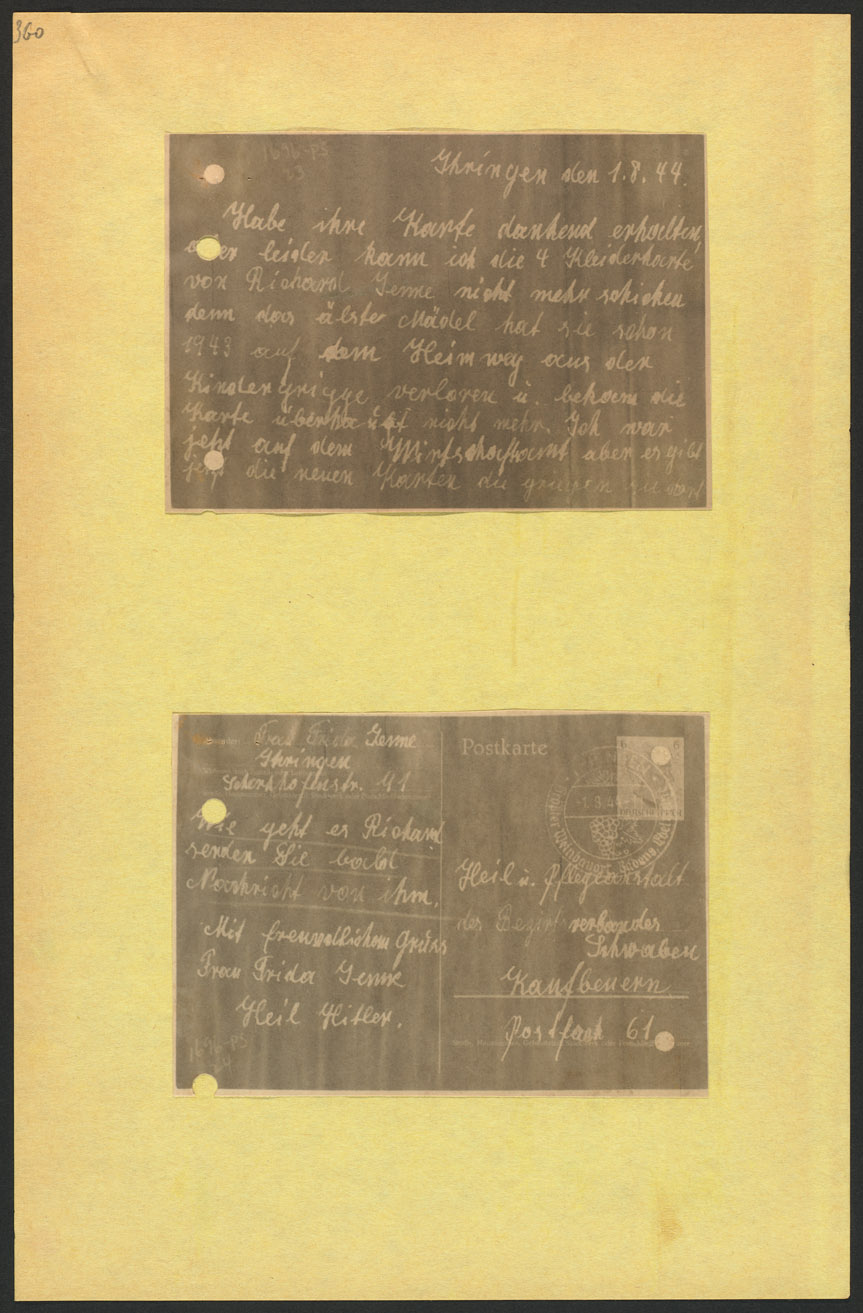 360
1696-PS
23
Ihringen den 1.8.44.
Habe ihre Karte dankend erhalten,
aber leider kann ich die 4 Kleiderkarte
von Richard Jenne nicht mehr schicken
denn das älste Mädel hat sie schon
1943 auf dem Heimweg aus der
Kindergrigge verloren u. bekom die
Karte überhaubt nicht mehr. Ich war
jetzt auf dem Wirtschaftsamt aber es gibt
jetzt die neuen Karten die griegen sie dort
Frau Frida Jenne
Ihringen
41
Wie geht es Richard
senden Sie bald
Nachricht von ihm.
Mit Gruss
Frau Frida Jenne
Heil Hitler.
1696-PS
Postkarte
6 6
Heil u. Pflegeanstalt
des Bezirksverbandes
Schwaben
Kaufbeuern
Postfach 61